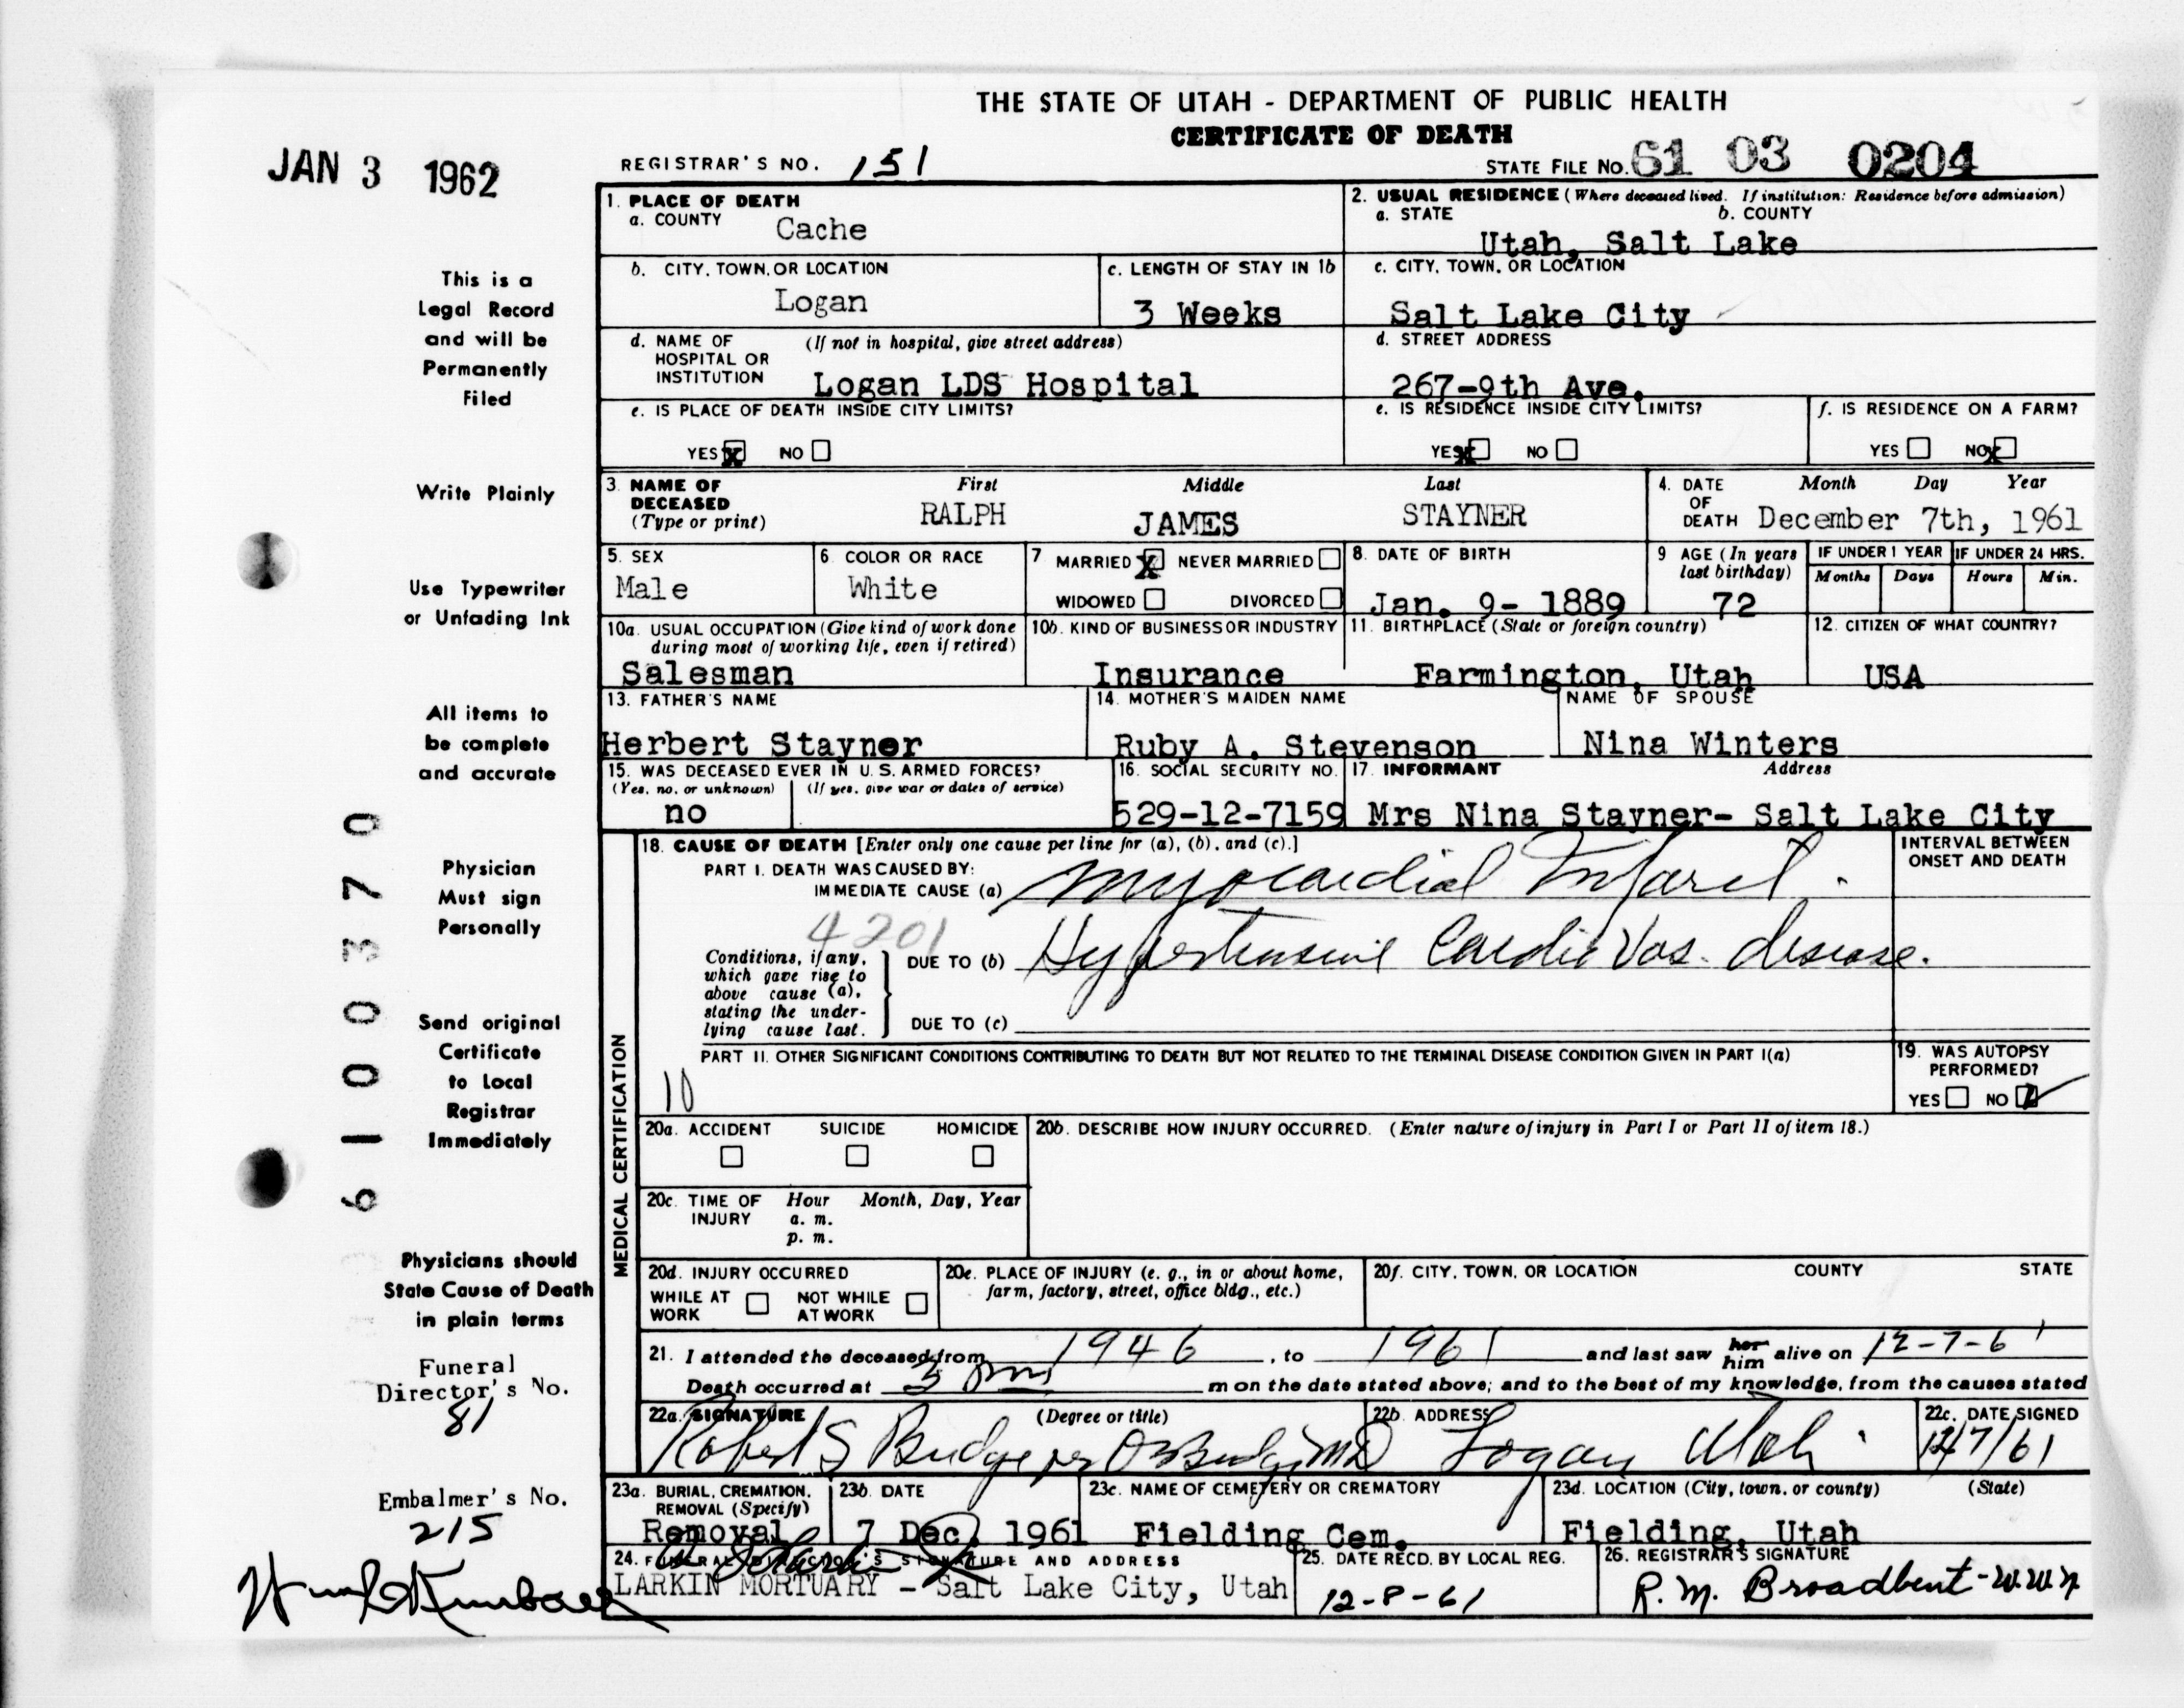 THE STATE OF UTAH - DEPARTMENT OF PUBLIC HEALTH
CERTIFICATE OF DEATH
JAN 3 1962
REGISTRAR'S NO. 151
STATE FILE NO. 61 03 0204
This is a
Legal Record
and will be
Permanently
Filed
Write Plainly
Use Typewriter
or Unfading Ink
All items to
be complete
and accurate
Physician
Must sign
Personally
Send original
Certificate
to Local
Registrar
Immediately
Physicians should
State Cause of Death
in plain terms
Funeral
Director's No.
81
Embalmer's No.
215
6 1 0 0 3 7 0
1. PLACE OF DEATH
a. COUNTY Cache
2. USUAL RESIDENCE (Where deceased lived. If institution: Residence before admission)
a. STATE b. COUNTY
Utah, Salt Lake
b. CITY, TOWN, OR LOCATION
Logan
c. LENGTH OF STAY IN 1b
3 Weeks
c. CITY, TOWN, OR LOCATION
Salt Lake City
d. NAME OF HOSPITAL OR INSTITUTION (If not in hospital, give street address)
Logan LDS Hospital
d. STREET ADDRESS
267-9th Ave.
e. IS PLACE OF DEATH INSIDE CITY LIMITS?
YES X NO
e. IS RESIDENCE INSIDE CITY LIMITS?
YES X NO
f. IS RESIDENCE ON A FARM?
YES NO X
3. NAME OF DECEASED (Type or print)
First Middle Last
RALPH JAMES STAYNER
4. DATE OF DEATH Month Day Year
December 7th, 1961
5. SEX
Male
6. COLOR OR RACE
White
7 MARRIED X NEVER MARRIED
WIDOWED DIVORCED
8. DATE OF BIRTH
Jan. 9- 1889
9 AGE (In years last birthday)
72
IF UNDER 1 YEAR IF UNDER 24 HRS.
Months Days Hours Min.
10a. USUAL OCCUPATION (Give kind of work done during most of working life, even if retired)
Salesman
10b. KIND OF BUSINESS OR INDUSTRY
Insurance
11. BIRTHPLACE (State or foreign country)
Farmington, Utah
12. CITIZEN OF WHAT COUNTRY?
USA
13. FATHER'S NAME
Herbert Stayner
14. MOTHER'S MAIDEN NAME
Ruby A. Stevenson
NAME OF SPOUSE
Nina Winters
15. WAS DECEASED EVER IN U.S. ARMED FORCES?
(Yes, no, or unknown) (If yes, give war or dates of service)
no
16. SOCIAL SECURITY NO.
529-12-7159
17. INFORMANT Address
Mrs Nina Stayner- Salt Lake City
MEDICAL CERTIFICATION
18. CAUSE OF DEATH [Enter only one cause per line for (a), (b), and (c).]
INTERVAL BETWEEN ONSET AND DEATH
PART I. DEATH WAS CAUSED BY:
IMMEDIATE CAUSE (a) Myocardial Infarct.
4201
Conditions, if any, which gave rise to above cause (a), stating the underlying cause last.
DUE TO (b) Hypertensive Cardio Vas. disease.
DUE TO (c)
PART II. OTHER SIGNIFICANT CONDITIONS CONTRIBUTING TO DEATH BUT NOT RELATED TO THE TERMINAL DISEASE CONDITION GIVEN IN PART I(a)
10
19. WAS AUTOPSY PERFORMED?
YES NO
20a. ACCIDENT SUICIDE HOMICIDE
20b. DESCRIBE HOW INJURY OCCURRED. (Enter nature of injury in Part I or Part II of item 18.)
20c. TIME OF INJURY Hour Month, Day, Year
a. m.
p. m.
20d. INJURY OCCURRED
WHILE AT WORK NOT WHILE AT WORK
20e. PLACE OF INJURY (e. g., in or about home, farm, factory, street, office bldg., etc.)
20f. CITY, TOWN, OR LOCATION COUNTY STATE
21. I attended the deceased from 1946, to 1961 and last saw her him alive on 12-7-61
Death occurred at 3 pm m on the date stated above; and to the best of my knowledge, from the causes stated
22a. SIGNATURE (Degree or title)
Robert S Budge per MD
22b. ADDRESS
Logan Utah
22c. DATE SIGNED
12/7/61
23a. BURIAL, CREMATION, REMOVAL (Specify)
Removal
23b. DATE
7 Dec. 1961
23c. NAME OF CEMETERY OR CREMATORY
Fielding Cem.
23d. LOCATION (City, town, or county) (State)
Fielding, Utah
24. FUNERAL DIRECTOR'S SIGNATURE AND ADDRESS
LARKIN MORTUARY - Salt Lake City, Utah
25. DATE RECD. BY LOCAL REG.
12-8-61
26. REGISTRAR'S SIGNATURE
R. M. Broadbent